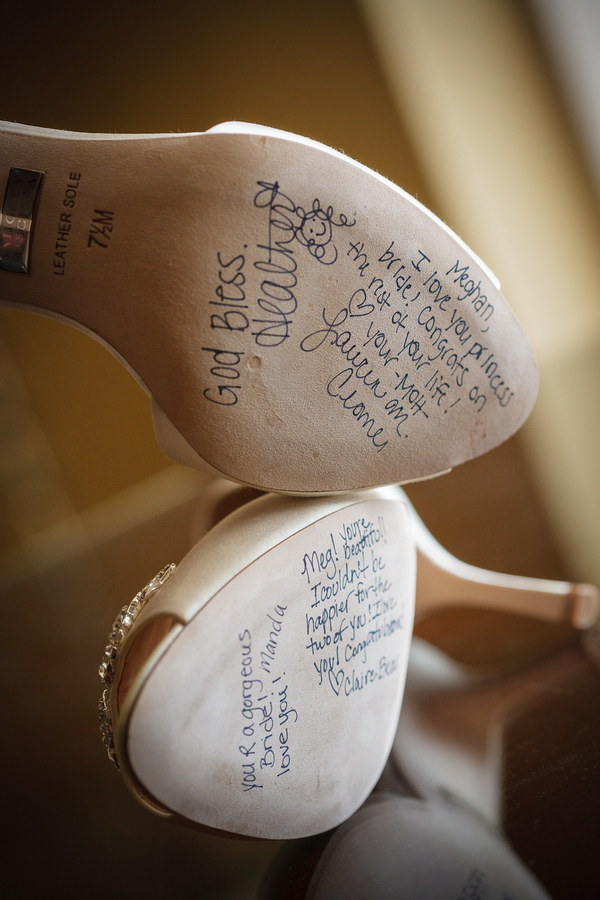 LEATHER SOLE
7½M
God Bless.
Heather
Meghan,
I love you princess
bride! Congrats on
the rest of your life!
♡ your - MOH
Lauren am.
Meg! you're
beautiful!
I couldn't be
happier for the
two of you! I love
you! Congratulations
♡ Claire Bear
you R a gorgeous
Bride! Manda
love you!